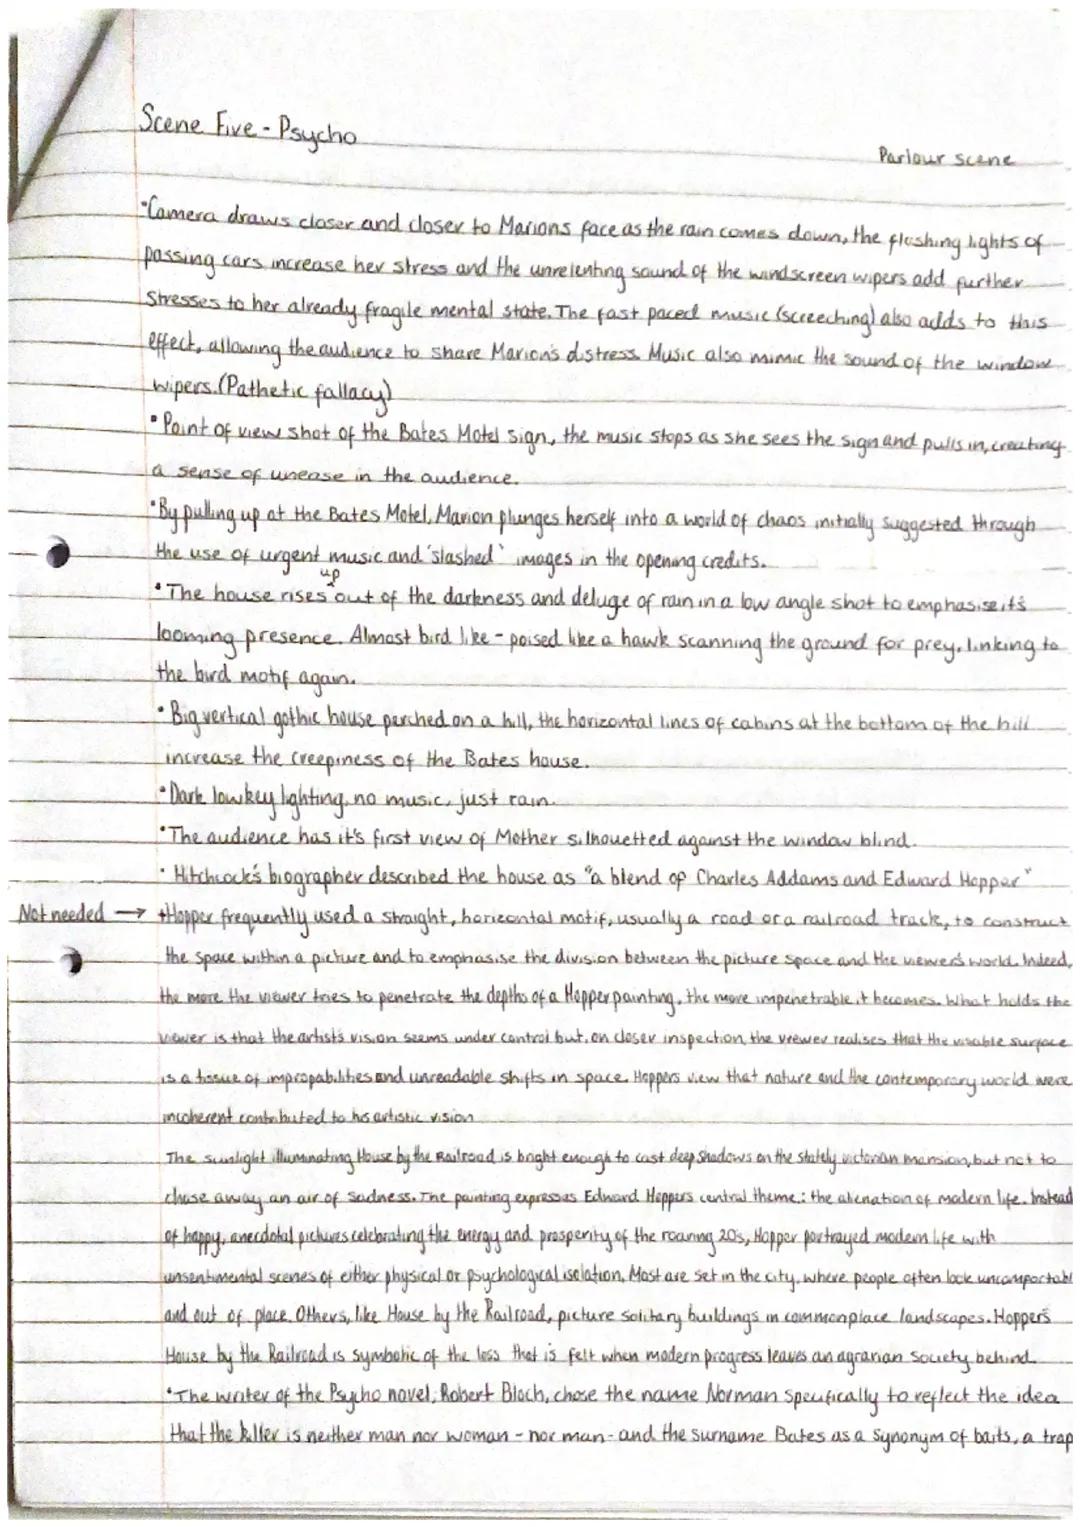 Scene Five - Psycho
Parlour scene
•Camera draws closer and closer to Marions face as the rain comes down, the flashing lights of
passing cars increase her stress and the unrelenting sound of the windscreen wipers add further
stresses to her already fragile mental state. The fast paced music (screeching) also adds to this
effect, allowing the audience to share Marion's distress. Music also mimic the sound of the window
wipers. (Pathetic fallacy)
•Point of view shot of the Bates Motel sign, the music stops as she sees the sign and pulls in, creating
a sense of unease in the audience.
•By pulling up at the Bates Motel, Marion plunges herself into a world of chaos initially suggested through
the use of urgent music and 'slashed' images in the opening credits.
•The house rises up out of the darkness and deluge of rain in a low angle shot to emphasise it's
looming presence. Almost bird like - poised like a hawk scanning the ground for prey, linking to
the bird motif again.
•Big vertical gothic house perched on a hill, the horizontal lines of cabins at the bottom of the hill
increase the creepiness of the Bates house.
•Dark lowkey lighting, no music, just rain.
•The audience has it's first view of Mother silhouetted against the window blind.
•Hitchcock's biographer described the house as "a blend of Charles Addams and Edward Hopper"
Not needed → +Hopper frequently used a straight, horizontal motif, usually a road or a railroad track, to construct
the space within a picture and to emphasise the division between the picture space and the viewer's world. Indeed,
the more the viewer tries to penetrate the depths of a Hopper painting, the more impenetrable it becomes. What holds the
viewer is that the artist's vision seems under control but, on closer inspection, the viewer realises that the visable surface
is a tissue of impropabilities and unreadable shifts in space. Hoppers view that nature and the contemporary world were
incoherent contributed to his artistic vision
The sunlight illuminating House by the Railroad is bright enough to cast deep shadows on the stately victorian mansion, but not to
chase away an air of sadness. The painting expresses Edward Hoppers central theme: the alienation of modern life. Instead
of happy, anecdotal pictures celebrating the energy and prosperity of the roaring 20s, Hopper portrayed modern life with
unsentimental scenes of either physical or psychological isolation. Most are set in the city, where people often look uncomfortabl
and out of place. Others, like House by the Railroad, picture solitary buildings in commonplace landscapes. Hopper's
House by the Railroad is symbolic of the loss that is felt when modern progress leaves an agrarian society behind.
•The writer of the Psycho novel, Robert Bloch, chose the name Norman specifically to reflect the idea
that the killer is neither man nor woman - nor man - and the surname Bates as a synonym of baits, a trap